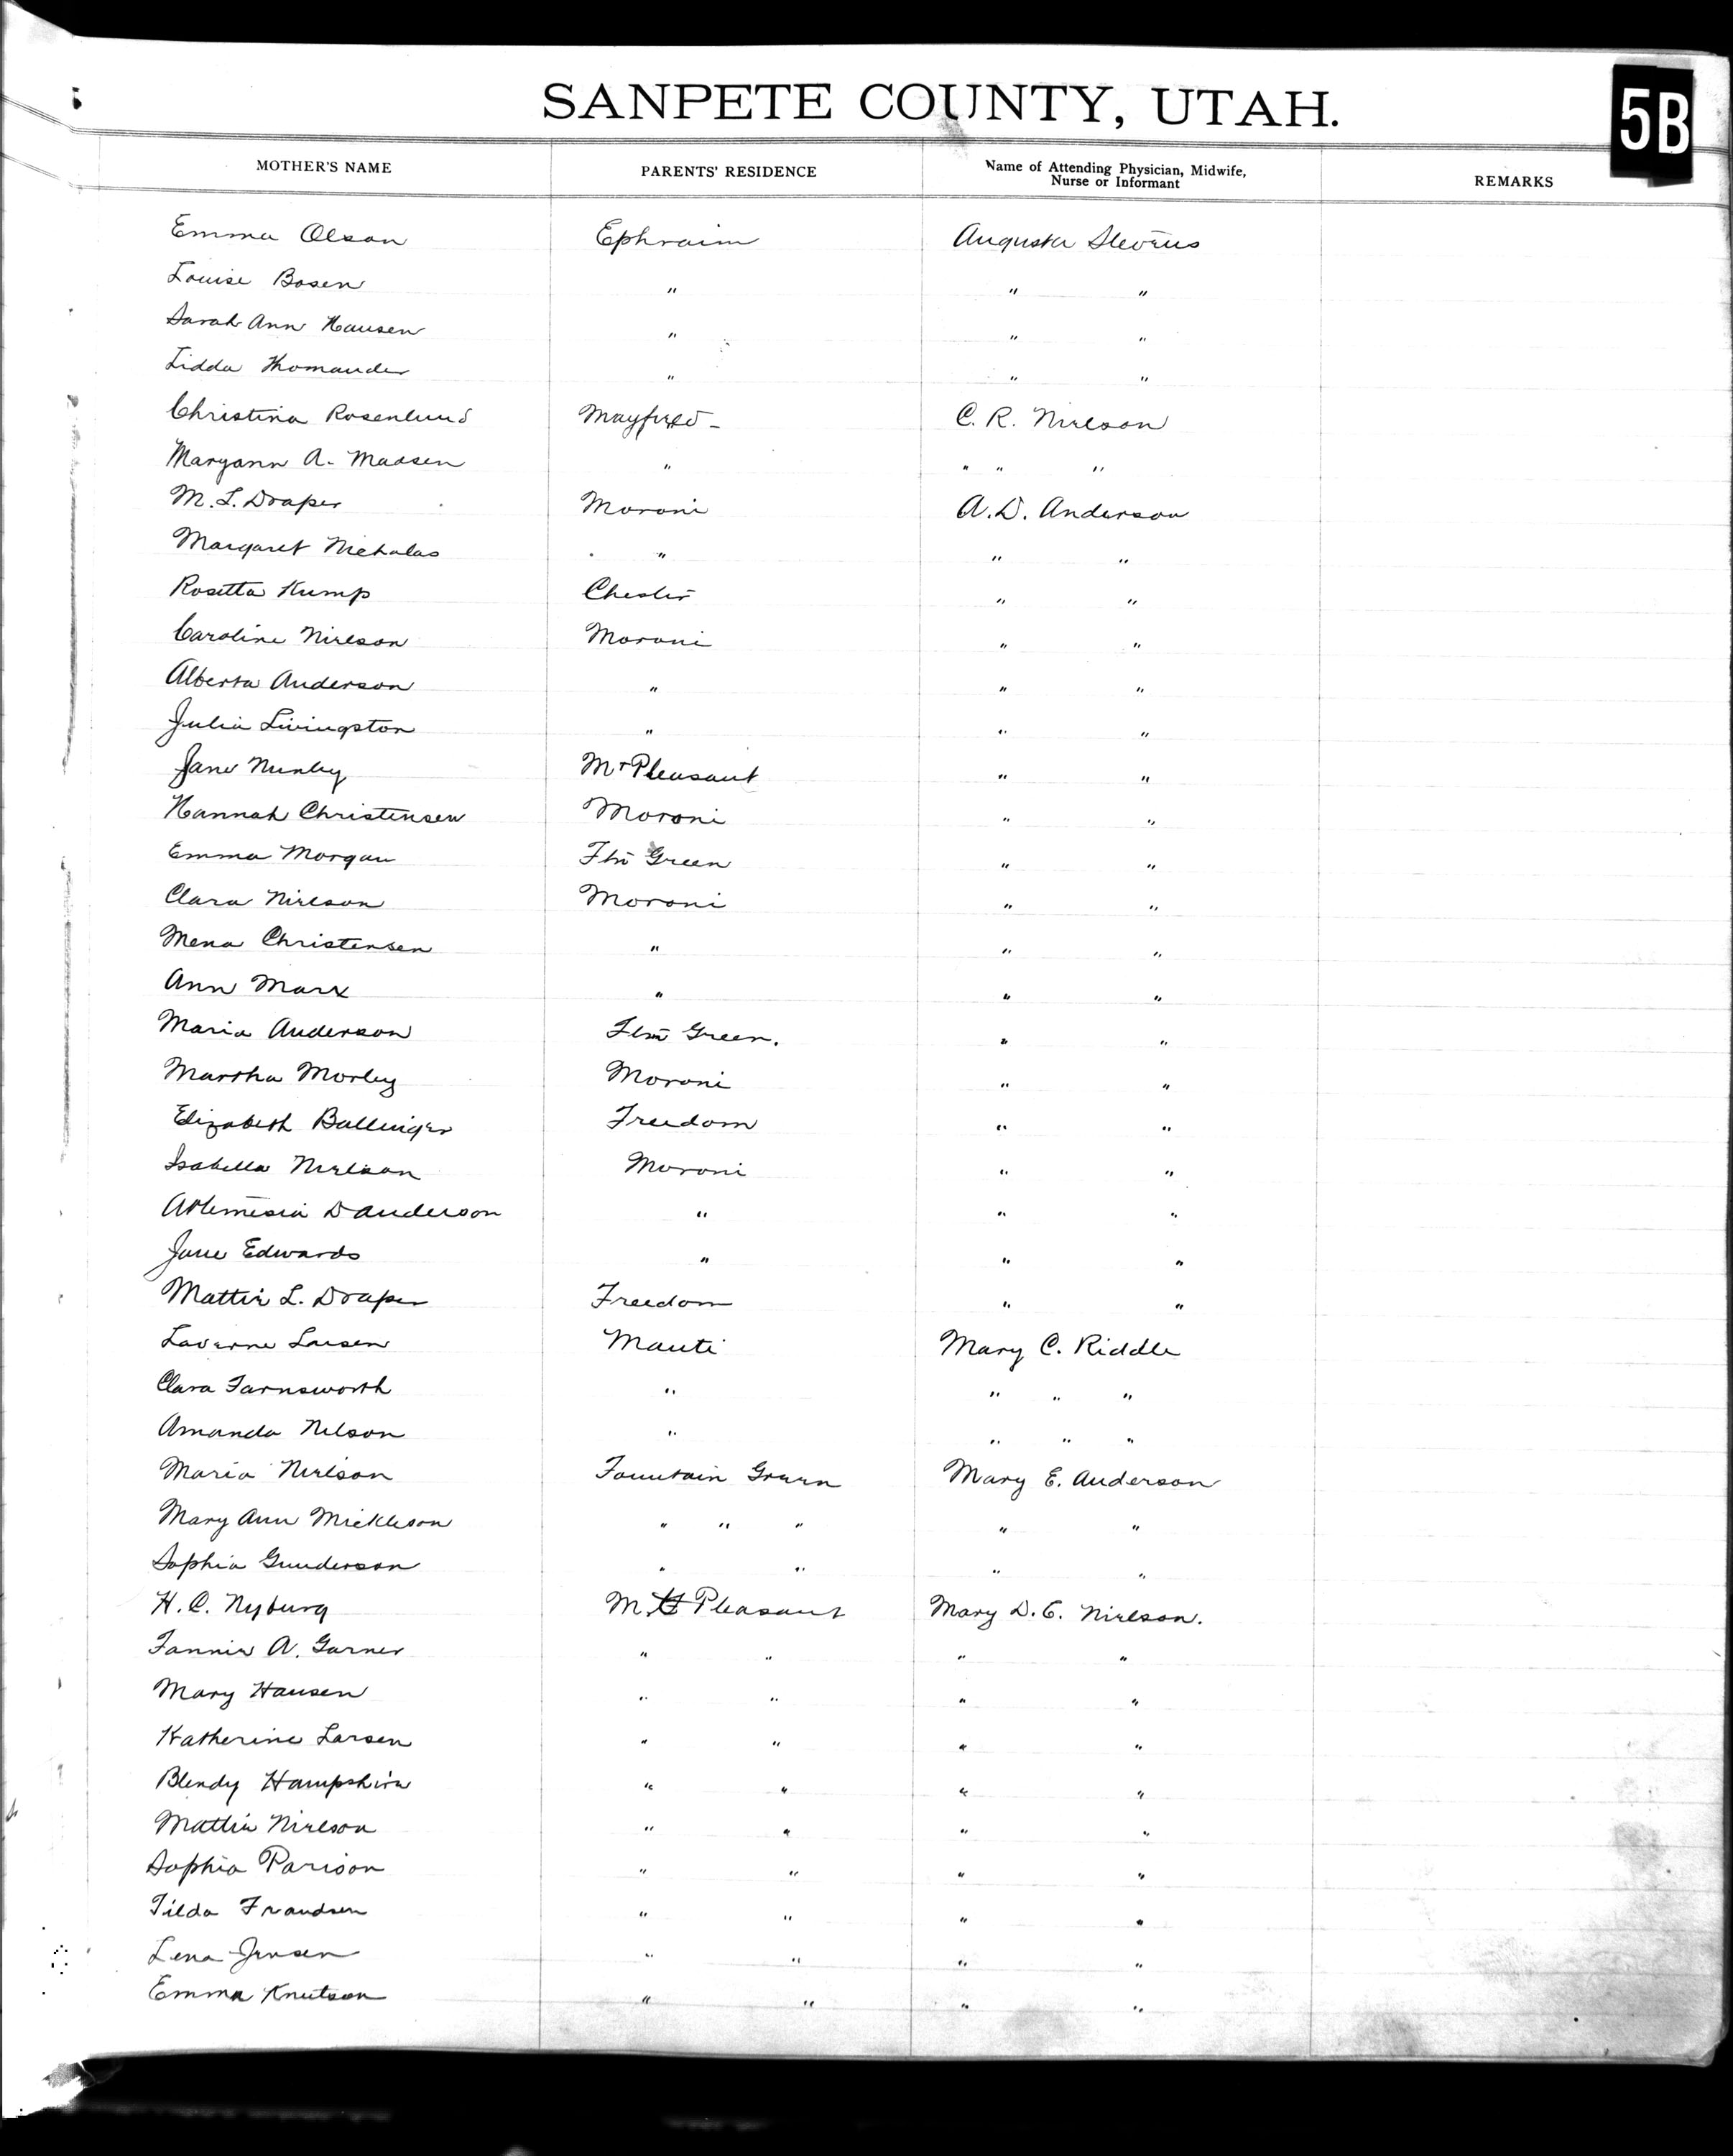 SANPETE COUNTY, UTAH.
5B
MOTHER'S NAME PARENTS' RESIDENCE Name of Attending Physician, Midwife, Nurse or Informant REMARKS
Emma Olson Ephraim Augusta Stevens
Louise Bosen " " "
Sarah Ann Hansen " " "
Lidda Thomander " " "
Christina Rosenlund Mayfield - C. R. Nielson
Maryann A. Madsen " " " "
M. L. Draper Moroni A. D. Anderson
Margaret Nicholas " " "
Rosetta Kump Chester " "
Caroline Nielson Moroni " "
Alberta Anderson " " "
Julia Livingston " " "
Jane Nunley Mt Pleasant " "
Hannah Christensen Moroni " "
Emma Morgan Ftn Green " "
Clara Nielson Moroni " "
Mena Christensen " " "
Ann Marx " " "
Maria Anderson Ftn Green. " "
Martha Morley Moroni " "
Elizabeth Ballinger Freedom " "
Isabella Nielson Moroni " "
Artemesia D Anderson " " "
Jane Edwards " " "
Mattie L. Draper Freedom " "
Laverne Larsen Manti Mary C. Riddle
Clara Farnsworth " " " "
Amanda Nelson " " " "
Maria Nielson Fountain Green Mary E. Anderson
Mary Ann Mickleson " " " " "
Sophia Gunderson " " " "
H. C. Nyburg Mt Pleasant Mary D. C. Nielson.
Fannie A. Garner " " " "
Mary Hansen " " " "
Katherine Larsen " " " "
Blendy Hampshire " " " "
Mattie Nielson " " " "
Sophia Parison " " " "
Tilda Frandsen " " " "
Lena Jensen " " " "
Emma Knutson " " " "